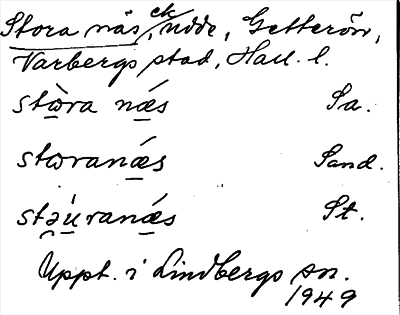 Stora näs, ck udde, Getterön,
Varbergs stad, Hall. l.
stὼ̱ra nǽ̱s Sa.
stωranǽ̱s Sand.
stə̯ú̱ranǽ̱s St.
Uppt. i Lindbergs sn.
1949